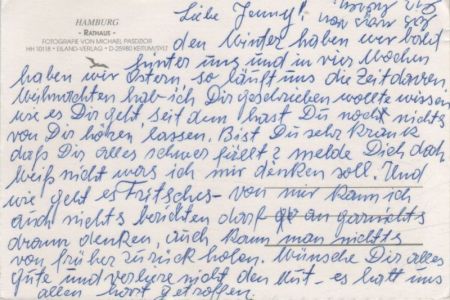 HAMBURG
- RATHAUS -
FOTOGRAFIE VON MICHAEL PASDZIOR
HH 10118 • EILAND-VERLAG • D-25980 KEITUM/SYLT
Liebe Jenny!
den Winter haben wir bald
hinter uns und in vier Wochen
haben wir Ostern, so läuft uns die Zeit davon
Weihnachten hab ich Dir geschrieben wollte wissen
wie es Dir geht, seit dem hast Du noch nichts
von Dir hören lassen. Bist Du sehr krank
daß Dir alles schwer fällt? melde Dich doch
Weiß nicht was ich mir denken soll. Und
wie geht es Fritsches - von mir kann ich
auch nichts berichten darf an garnichts
drann denken, auch kann man nichts
von früher zurück holen. Wünsche Dir alles
gute und verliere nicht den Mut - es hatt uns
allen hart getroffen.